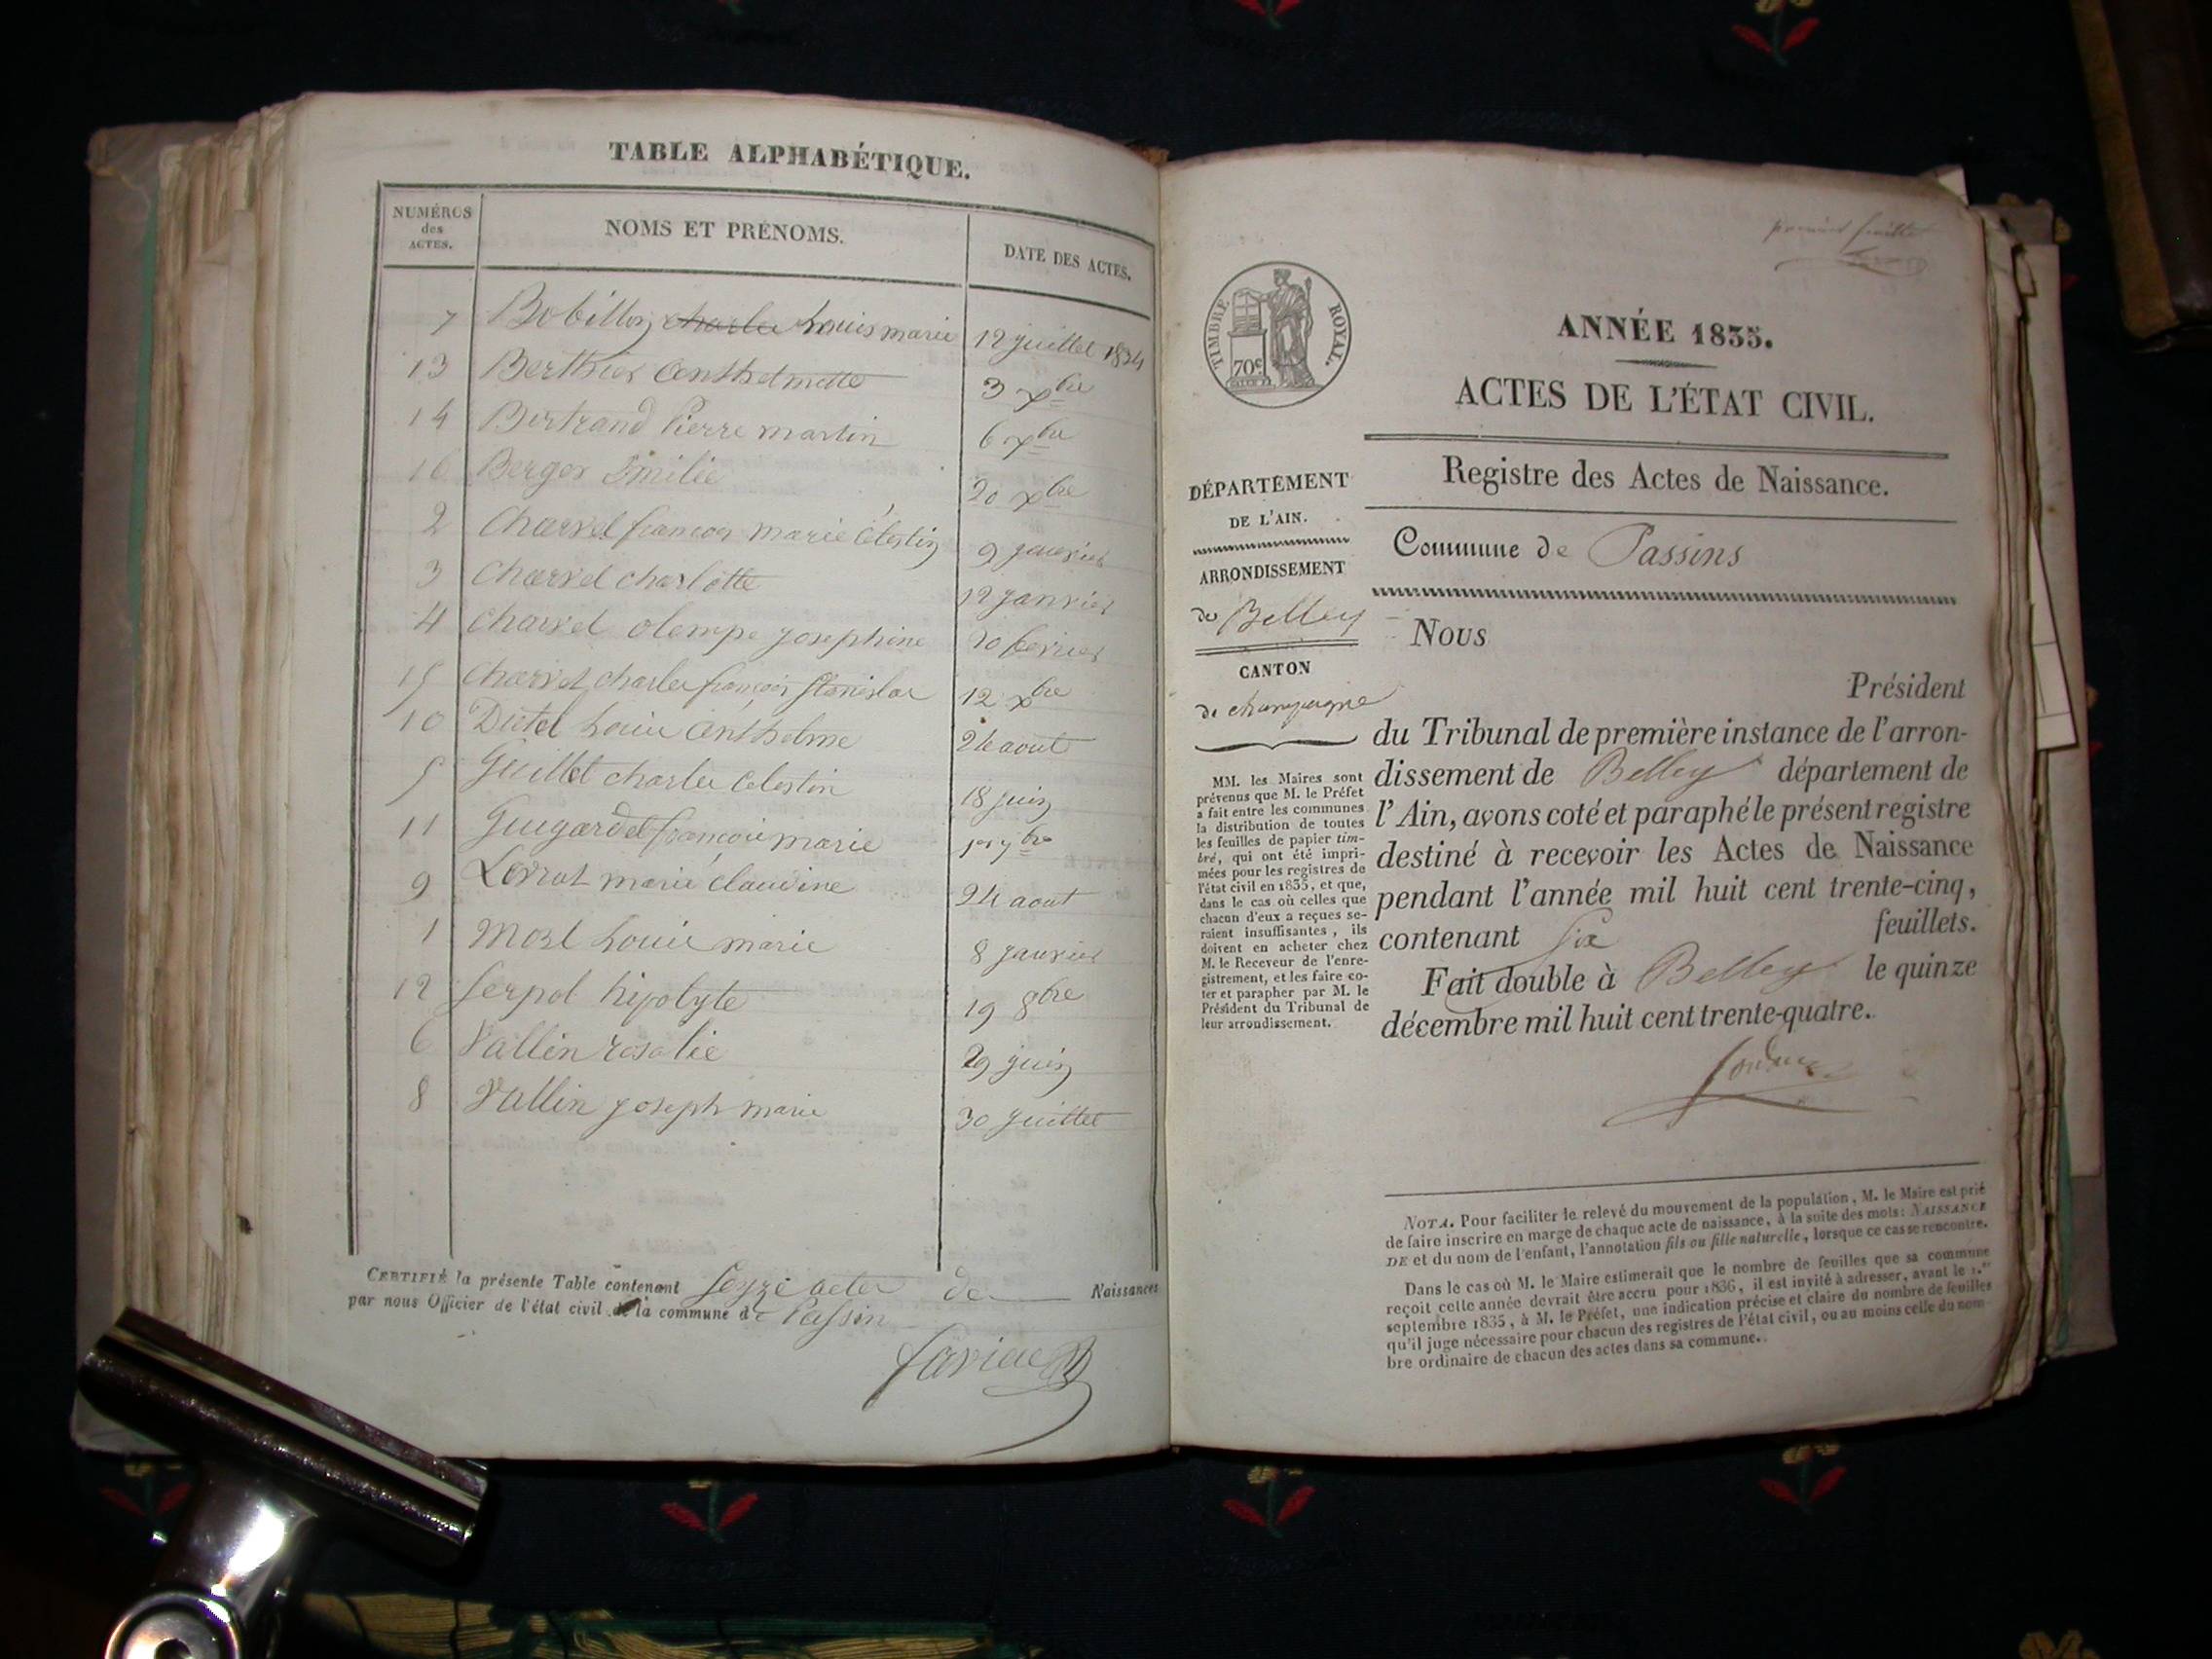 TABLE ALPHABÉTIQUE.
NUMÉROS des ACTES.
NOMS ET PRÉNOMS.
DATE DES ACTES.
7 Bobillon charles Louis marie 12 juillet 1834
13 Berthier Anthelmette 3 xbre
14 Bertrand Pierre martin 6 xbre
16 Berger Emilie 20 xbre
2 Charvet francois marie Célestin 9 janvier
3 Charvet charlotte 12 janvier
4 Charvet olempe josephine 20 fevrier
15 Charvet charles françois Stanislas 12 xbre
10 Dutel Louis Anthelme 24 aout
5 Guillot charles Celestin 18 juin
11 Guigard françois marie 1er 7bre
9 marie Claudine 24 aout
1 Louis marie 8 janvier
12 Serpol hipolyte 19 8bre
6 Vallin rosalie 29 juin
8 Vallin joseph marie 30 juillet
CERTIFIÉ la présente Table contenant Seyze actes de Naissances
par nous Officier de l'état civil de la commune de Passin
premier feuillet
TIMBRE ROYAL.
70c
ANNÉE 1835.
ACTES DE L'ÉTAT CIVIL.
Registre des Actes de Naissance.
DÉPARTEMENT
DE L'AIN.
ARRONDISSEMENT
de Belley
CANTON
de champagne
MM. les Maires sont
prévenus que M. le Préfet
a fait entre les communes
la distribution de toutes
les feuilles de papier tim-
bré, qui ont été impri-
mées pour les registres de
l'état civil en 1835, et que,
dans le cas où celles que
chacun d'eux a reçues se-
raient insuffisantes, ils
doivent en acheter chez
M. le Receveur de l'enre-
gistrement, et les faire co-
ter et parapher par M. le
Président du Tribunal de
leur arrondissement.
Commune de Passins
Nous
Président
du Tribunal de première instance de l'arron-
dissement de Belley département de
l'Ain, avons coté et paraphé le présent registre
destiné à recevoir les Actes de Naissance
pendant l'année mil huit cent trente-cinq,
contenant Six feuillets.
Fait double à Belley le quinze
décembre mil huit cent trente-quatre.
NOTA. Pour faciliter le relevé du mouvement de la population, M. le Maire est prié
de faire inscrire en marge de chaque acte de naissance, à la suite des mots: NAISSANCE
DE et du nom de l'enfant, l'annotation fils ou fille naturelle, lorsque ce cas se rencontre.
Dans le cas où M. le Maire estimerait que le nombre de feuilles que sa commune
reçoit cette année devrait être accru pour 1836, il est invité à adresser, avant le 1.er
septembre 1835, à M. le Préfet, une indication précise et claire du nombre de feuilles
qu'il juge nécessaire pour chacun des registres de l'état civil, ou au moins celle du nom-
bre ordinaire de chacun des actes dans sa commune.